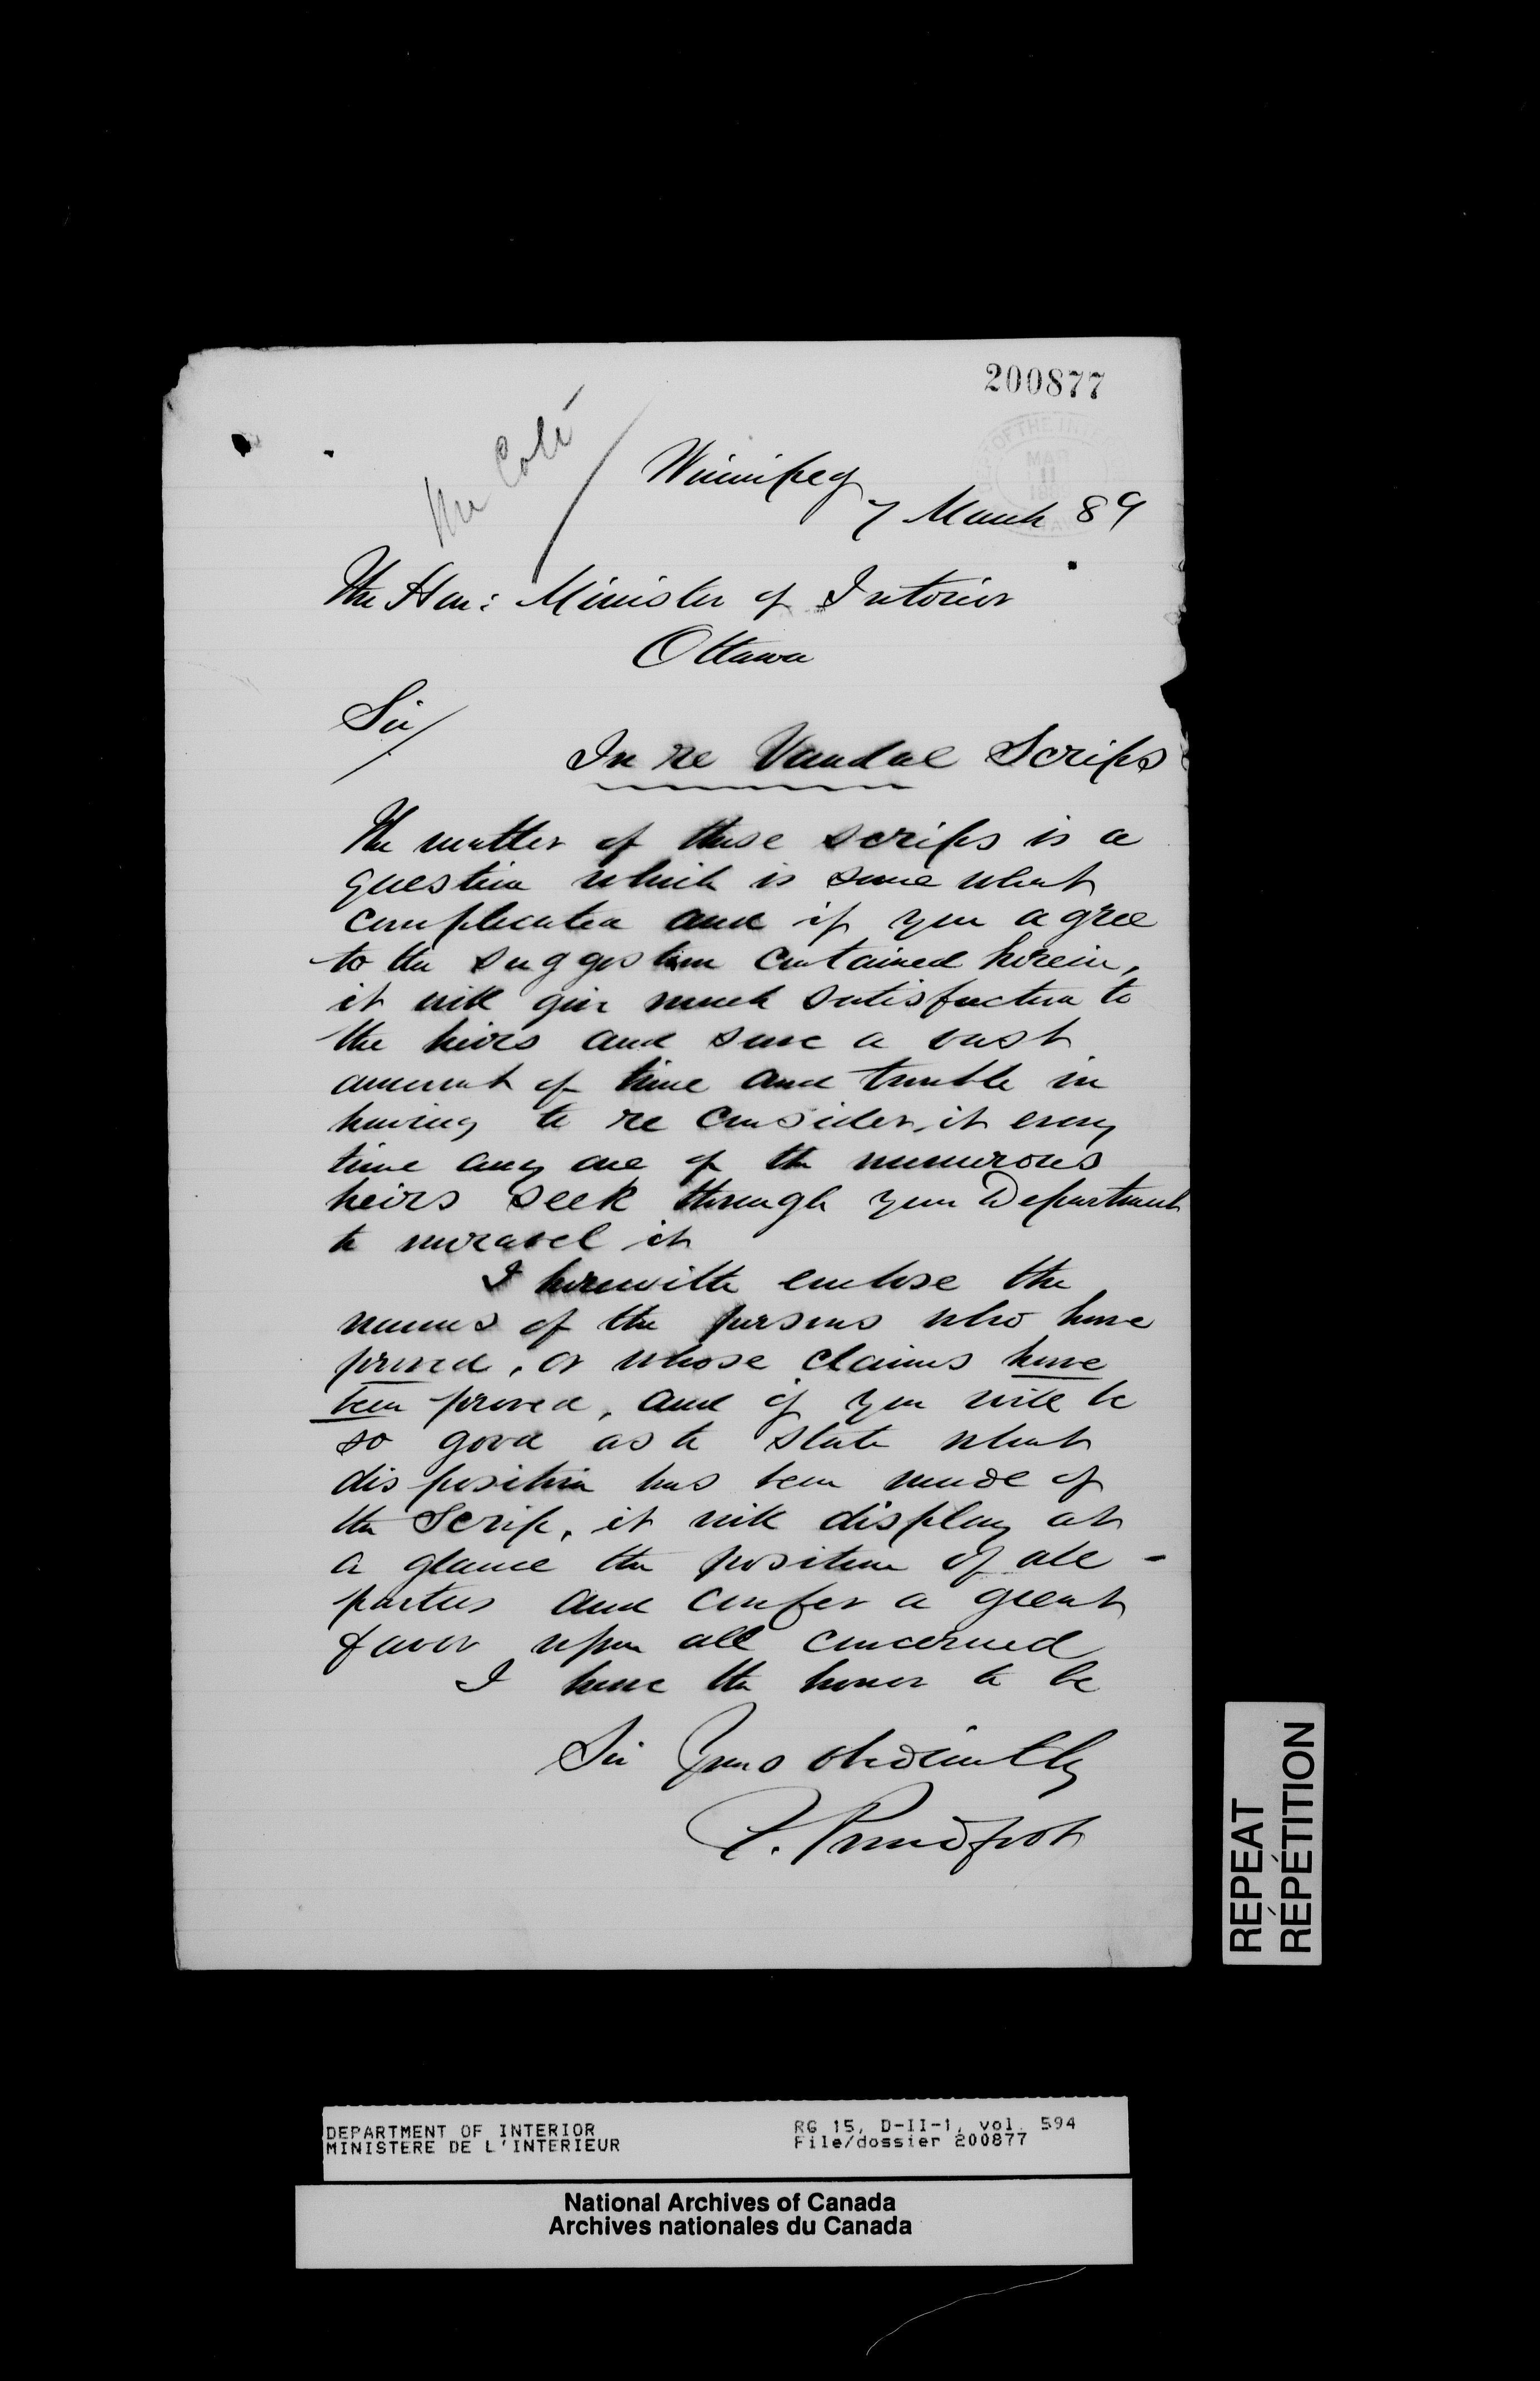 200877
Mr Coté
DEPT OF THE INTE
MAR
11
Winnipeg
7 March 89
The Hon: Minister of Interior
Ottawa
Sir/
In re Vandal Scrips
The matter of these scrips is a
question which is some what
complicated and if you agree
to the suggestion contained herein,
it will give much satisfaction to
the heirs and save a vast
amount of time and trouble in
having to re consider it every
time any one of the numerous
heirs seek through your Department
to unravel it
I herewith enclose the
names of the persons who have
proved, or whose claims have
been proved, and if you will be
so good as to state what
disposition has been made of
the Scrip, it will display at
a glance the position of all -
parties and confer a great
favor upon all concerned
I have the honor to be
Sir Yours obediently
F. Proudfoot
REPEAT
RÉPÉTITION
DEPARTMENT OF INTERIOR
MINISTERE DE L'INTERIEUR
RG 15, D-II-1, vol. 594
File/dossier 200877
National Archives of Canada
Archives nationales du Canada